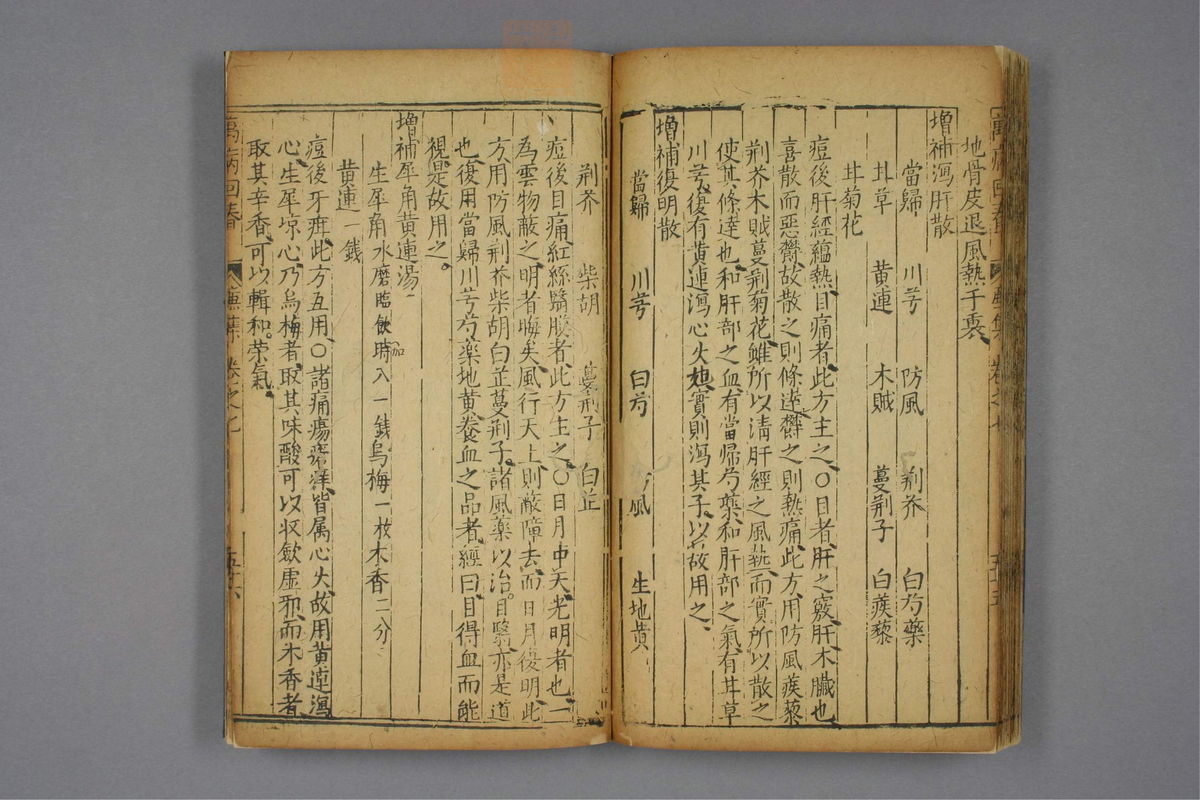 地骨皮退風熱于裏
增補瀉肝散
當歸 川芎 防風 荆芥 白芍藥
甘草 黄連 木賊 蔓荆子 白蒺藜
甘菊花
痘後肝經蘊熱目痛者此方主之〇目者肝之竅肝木臟也
喜散而惡欝故散之則條達欝之則熱痛此方用防風蒺藜
荆芥木賊蔓荆菊花雖所以清肝經之風熱而實所以散之
使其條達也和肝部之血有當歸芍藥和肝部之氣有甘草
川芎復有黄連瀉心火也實則瀉其子以故用之
增補復明散
當歸 川芎 白芍 防風 生地黄
荆芥 柴胡 蔓荆子 白芷
痘後目痛紅絲翳膜者此方主之〇日月中天光明者也一
為雲物蔽之明者晦矣風行天上則蔽障去而日月復明此
方用防風荆芥柴胡白芷蔓荆子諸風藥以治目翳亦是道
也復用當歸川芎芍藥地黄養血之品者經曰目得血而能
視是故用之
增補犀角黄連湯
生犀角水磨臨飲時加入一錢烏梅一枚木香二分
黄連一錢
痘後牙疳此方五用〇諸痛瘍瘡痒皆属心火故用黄連瀉
心生犀凉心乃烏梅者取其味酸可以収斂虚邪而木香者
取其辛香可以輯和荣氣
萬病回春
卷之七